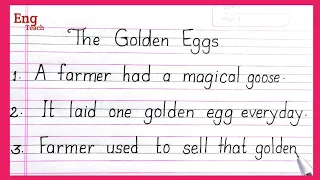 Eng
Teach
The Golden Eggs
1. A farmer had a magical goose.
2. It laid one golden egg everyday.
3. Farmer used to sell that golden